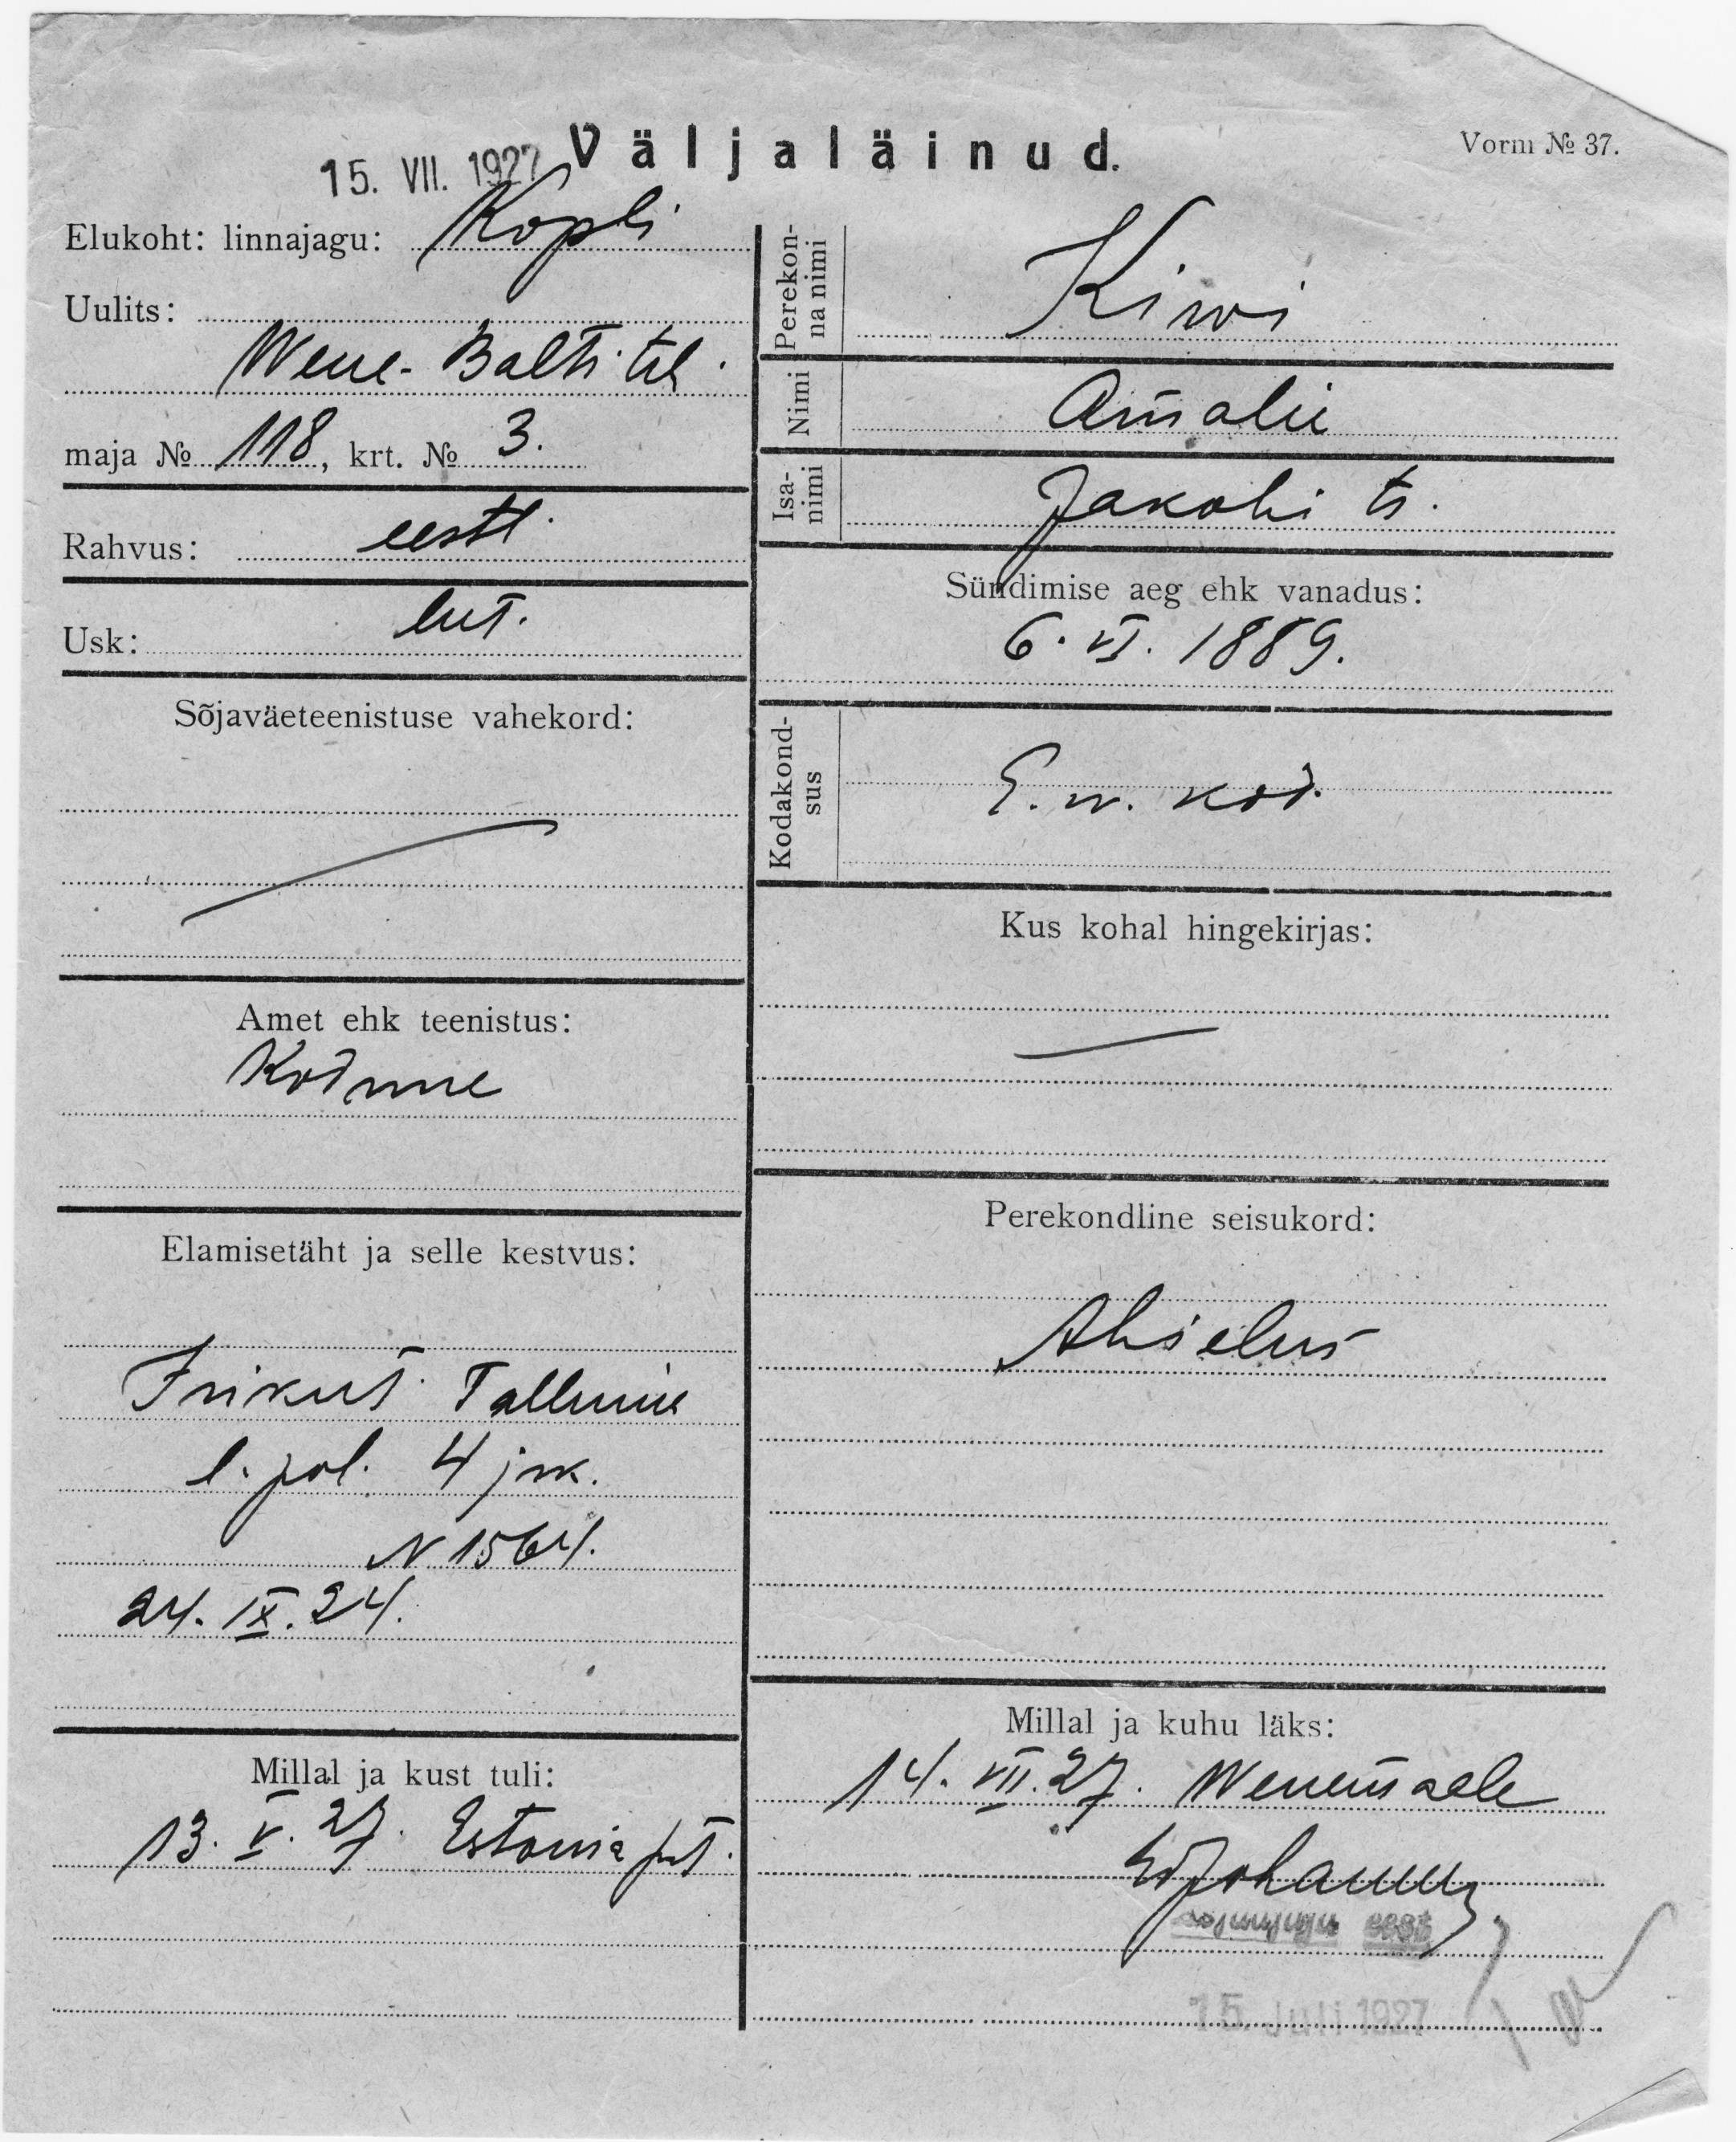 15. VII. 1927 Väljaläinud.
Vorm № 37.
Elukoht: linnajagu: Kopli
Uulits:
Wene-Balti teh.
maja № 118, krt. № 3.
Rahvus: eestl.
Usk: lut.
Sõjaväeteenistuse vahekord:
Amet ehk teenistus:
Kodune
Elamisetäht ja selle kestvus:
Isikut. Tallinna
l. pol. 4 jsk.
N 1564.
24. IX. 24.
Millal ja kust tuli:
13. V. 27. Estonia pst.
Perekon-
na nimi
Kiwi
Nimi
Amalie
Isa-
nimi
Jakobi tr.
Sündimise aeg ehk vanadus:
6. VI. 1889.
Kodakond-
sus
E. w. kod.
Kus kohal hingekirjas:
Perekondline seisukord:
Abielus
Millal ja kuhu läks:
14. VII. 27. Wenemaale
15. Juli 1927